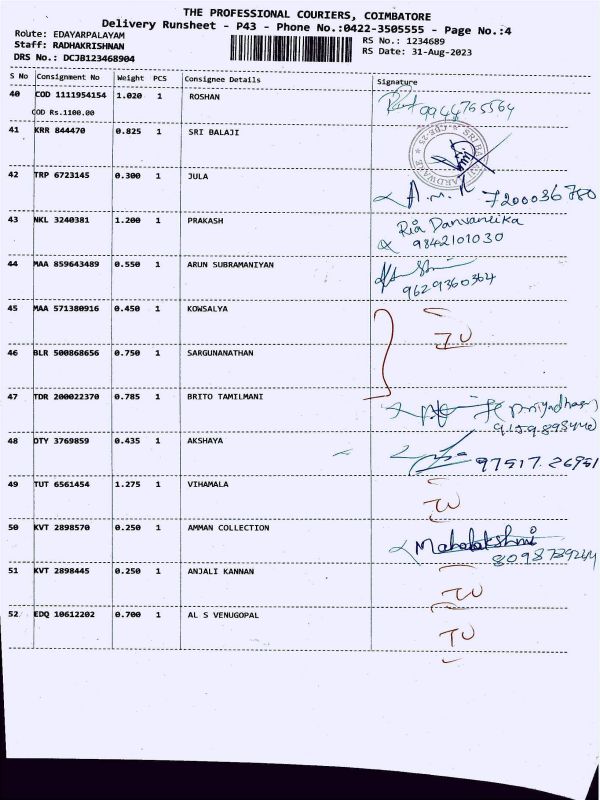 THE PROFESSIONAL COURIERS, COIMBATORE
Delivery Runsheet - P43 - Phone No.:0422-3505555 - Page No.:4
Route: EDAYARPALAYAM
RS No.: 1234689
Staff: RADHAKRISHNAN
RS Date: 31-Aug-2023
DRS No.: DCJB123468904
S No Consignment No Weight PCS Consignee Details Signature
40 COD 1111954154 1.020 1 ROSHAN
COD Rs.1100.00
9944765564
41 KRR 844470 0.825 1 SRI BALAJI
42 TRP 6723145 0.300 1 JULA
7200036780
43 NKL 3240381 1.200 1 PRAKASH Ria
9842101030
44 MAA 859643489 0.550 1 ARUN SUBRAMANIYAN
9629360364
45 MAA 571380916 0.450 1 KOWSALYA
46 BLR 500868656 0.750 1 SARGUNANATHAN
47 TDR 200022370 0.785 1 BRITO TAMILMANI
48 OTY 3769859 0.435 1 AKSHAYA 97517.26951
49 TUT 6561454 1.275 1 VIHAMALA
50 KVT 2898570 0.250 1 AMMAN COLLECTION Mahalakshmi
51 KVT 2898445 0.250 1 ANJALI KANNAN
52 EDQ 10612202 0.700 1 AL S VENUGOPAL